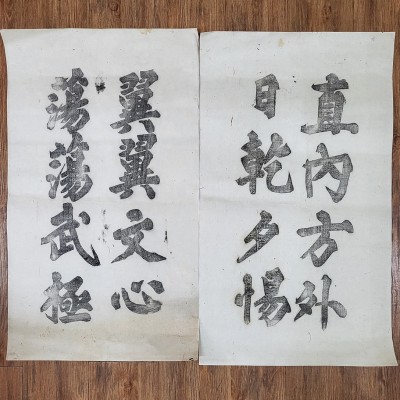 直内方外
日乾夕惕
翼翼文心
蕩蕩武極